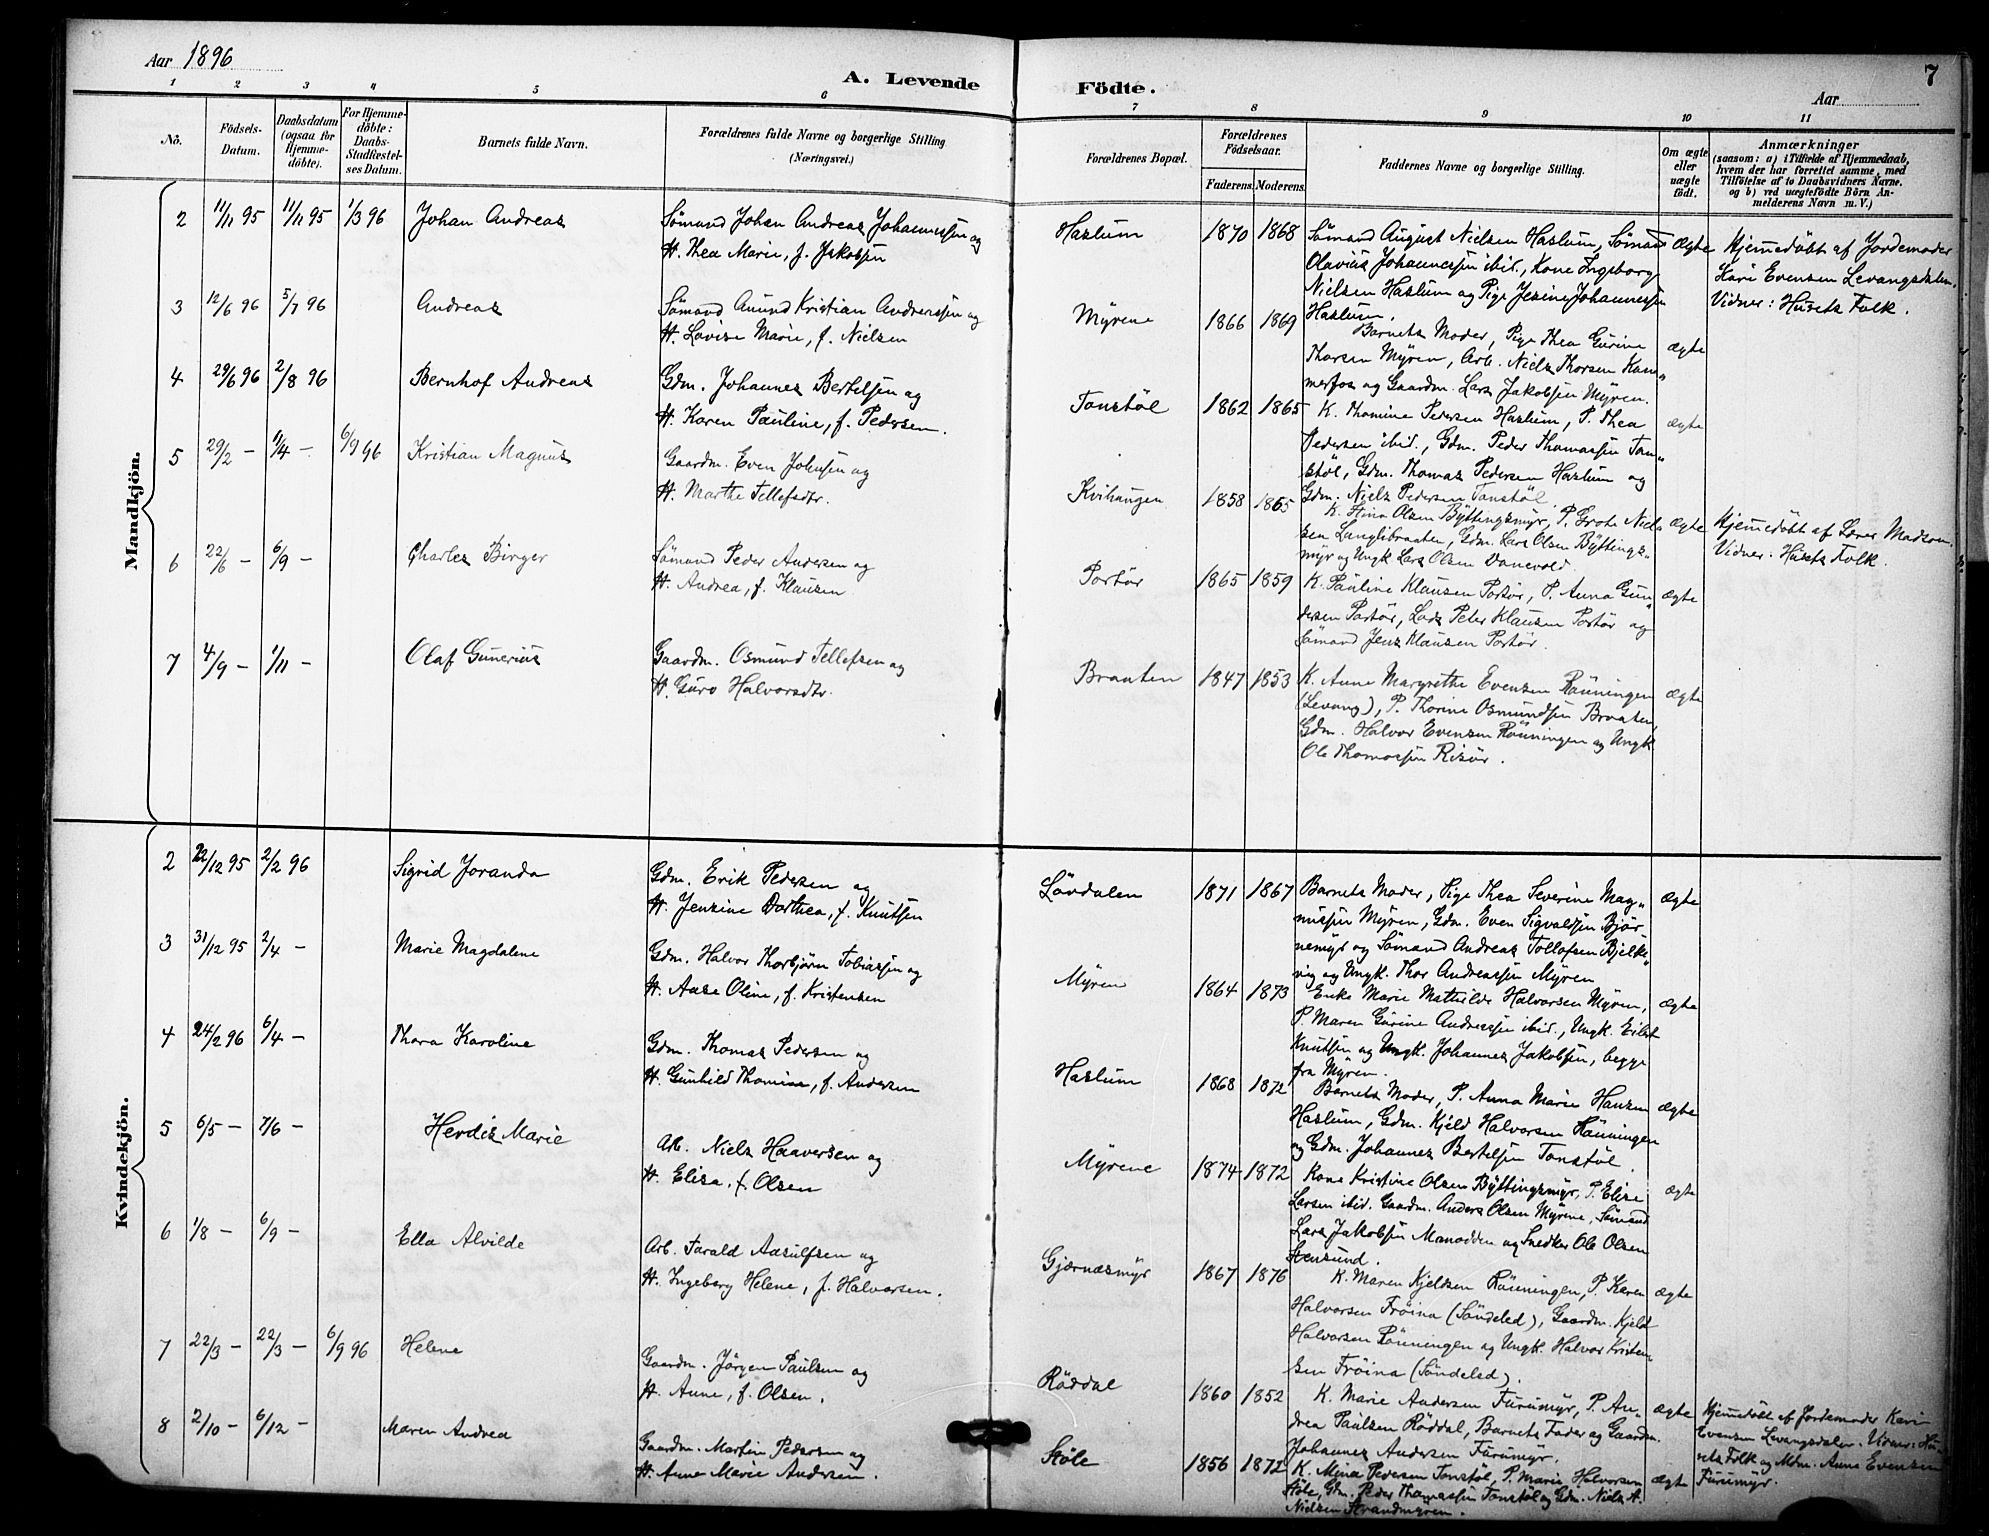 Aar 1896
A. Levende
Födte.
7
Aar
1 2 3 4 5 6 7 8 9 10 11
No.
Födsels-
Datum.
Daabsdatum
(ogsaa for
Hjemme-
döbte).
For Hjemme-
döbte:
Daabs-
Stadfæstel-
ses Datum.
Barnets fulde Navn.
Forældrenes fulde Navne og borgerlige Stilling
(Næringsvei.)
Forældrenes Bopæl.
Forældrenes
Födselsaar.
Faderens. Moderens.
Faddernes Navne og borgerlige Stilling.
Om ægte
eller
uægte
födt.
Anmærkninger
(saasom: a) i Tilfælde af Hjemmedaab,
hvem der har forrettet samme, med
Tilföielse af to Daabsvidners Navne.
og b) ved uægtefödte Börn An-
melderens Navn m. V.)
Mandkjön.
2 11/11 95 11/11 95 1/3 96 Johan Andreas
Sømand Johan Andreas Johannessen og
H. Thea Marie, f. Jakobsen
Haslum 1870 1868
Sømand August Nielsen Haslum, Sømand
Olavius Johannessen ibid., Kone Ingeborg
Nielsen Haslum og Pige Jesine Johannessen
Haslum.
ægte
Hjemmedöbt af Jordemoder
Kari Evensen Levangsdalen.
Vidner: Husets Folk.
3 12/6 96 5/7 96 Andreas
Sømand Anund Kristian Andreassen og
H. Lovise Marie, f. Nielsen
Myrene 1866 1869
Barnets Moder, Pige Thea Gurine
Thorsen Myren, Arb. Niels Thorsen Kam„
merfos og Gaardm. Lars Jakobsen Myren.
ægte
4 29/6 96 2/8 96 Bernhof Andreas
Gdm. Johannes Bertelsen og
H. Karen Pauline, f. Pedersen.
Tonstöl 1862 1865
K. Thomine Pedersen Haslum, P. Thea
Pedersen ibid., Gdm. Peder Thomassen Ton„
stöl, Gdm. Thomas Pedersen Haslum og
Gdm. Niels Pedersen Tonstöl
ægte
5 29/2 – 1/4 – 6/9 96 Kristian Magnus
Gaardm. Even Johnsen og
H. Marthe Tellefsdtr.
Kvihaugen 1858 1865
K. Stina Olsen Byttingsmyr, P. Grote Niel„
sen Langlibraaten, Gdm. Lars Olsen Byttings„
myr og Ungk Lars Olsen Danevold.
ægte
Hjemmedöbt af Lærer Madsen.
Vidner: Husets Folk.
6 22/6 – 6/9 – Charles Birger
Sömand Peder Andersen og
H. Andrea, f. Klausen
Portör 1865 1859
K. Pauline Klausen Portör, P. Anna Gun„
dersen Portör, Lods Peter Klausen Portör og
Sömand Jens Klausen Portör.
ægte
7 4/9 – 1/11 – Olaf Gunerius
Gaardm. Osmund Tellefsen og
H. Guro Halvorsdtr.
Braaten 1847 1853
K. Anne Margrethe Evensen Rönningen
(Levang), P. Thorine Osmundsen Braaten,
Gdm. Halvor Evensen Rönningen og Ungk
Ole Thomassen Risör.
ægte
Kvindekjön.
2 22/12 95 2/2 96 Sigrid Joranda
Gdm. Erik Pedersen og
H. Jensine Dorthea, f. Knutsen
Lövdalen 1871 1867
Barnets Moder, Pige Thea Severine Mag„
nussen Myren, Gdm. Even Sigvaldsen Björ„
nemyr og Sömand Andreas Tollofsen Bjelke„
vig og Ungk. Thor Andreassen Myren
ægte
3 31/12 95 2/4 – Marie Magdalene
Gdm. Halvor Thorbjörn Tobiassen og
H. Aase Oline, f. Kristensen
Myren 1864 1873
Enke Marie Mathilde Halvorsen Myren,
P. Maren Gurine Andreassen ibid., Ungk. Eilert
Knutsen og Ungk. Johannes Jakobsen, begge
fra Myren.
ægte
4 24/2 96 6/4 – Thora Karoline
Gdm. Thomas Pedersen og
H. Gunhild Thomine, f. Andersen
Haslum 1868 1872
Barnets Moder, P. Anna Marie Hansen
Haslum, Gdm. Kjeld Halvorsen Rönningen
og Gdm. Johannes Bertelsen Tonstöl.
ægte
5 6/5 – 7/6 – Herdis Marie
Arb. Niels Haaversen og
H. Elise, f. Olsen
Myrene 1874 1872
Kone Kristine Olsen Byttingsmyr, P. Elise
Larsen ibid. Gaardm. Anders Olsen Myrene, Sömand
Lars Jakobsen Monodden og Snedker Ole Olsen
Stensund.
ægte
6 1/8 – 6/9 – Ella Alvilde
Arb. Tarald Aasulfsen og
H. Ingeborg Helene, f. Halvorsen.
Gjærnæsmyr 1867 1876
K. Maren Kjeldsen Rönningen, P. Karen
Halvorsen Fröina (Söndeled), Gaardm. Kjeld
Halvorsen Rönningen og Ungk. Halvor Kristen„
sen Fröina (Söndeled).
ægte
7 22/3 – 22/3 – 6/9 96 Helene
Gaardm. Jörgen Paulsen og
H. Anne, f. Olsen.
Röddal 1860 1852
K. Marie Andersen Furumyr, P. An„
drea Paulsen Röddal, Barnets Fader og Gaardm.
Johannes Andersen Furumyr.
ægte
Hjemmedöbt af Jordemoder Kari
Evensen Levangsdalen. Vidner: Hu„
sets Folk og Mdm. Anne Evensen
Furumyr.
8 2/10 – 6/12 – Maren Andrea
Gaardm. Martin Pedersen og
H. Anne Marie Andersen.
Stöle 1856 1872
K. Mina Pedersen Tonstöl, P. Marie Halvorsen
Stöle, Gdm. Peder Thomassen Tonstöl og Gdm. Niels A.
Nielsen Strandmyren.
ægte